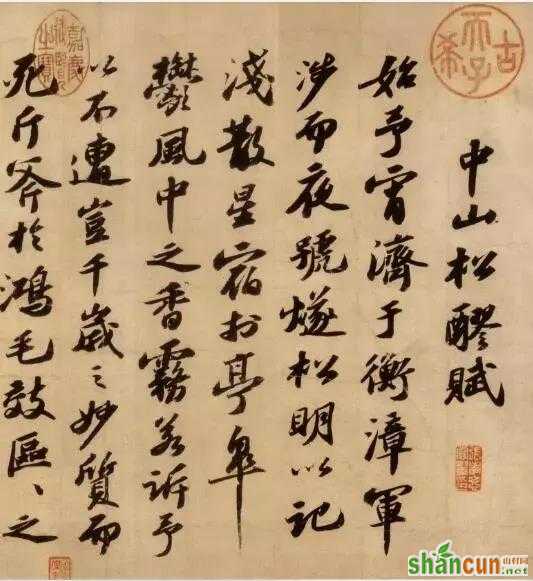 古希天子
中山松醪賦
始予宵濟于衡漳軍
涉而夜號燧松明以記
淺散星宿於亭皋
鬱風中之香霧若訴予
以不遭豈千歲之妙質而
死斤斧於鴻毛效區、之
嘉慶御覽之寶
shancun
山村网
.net